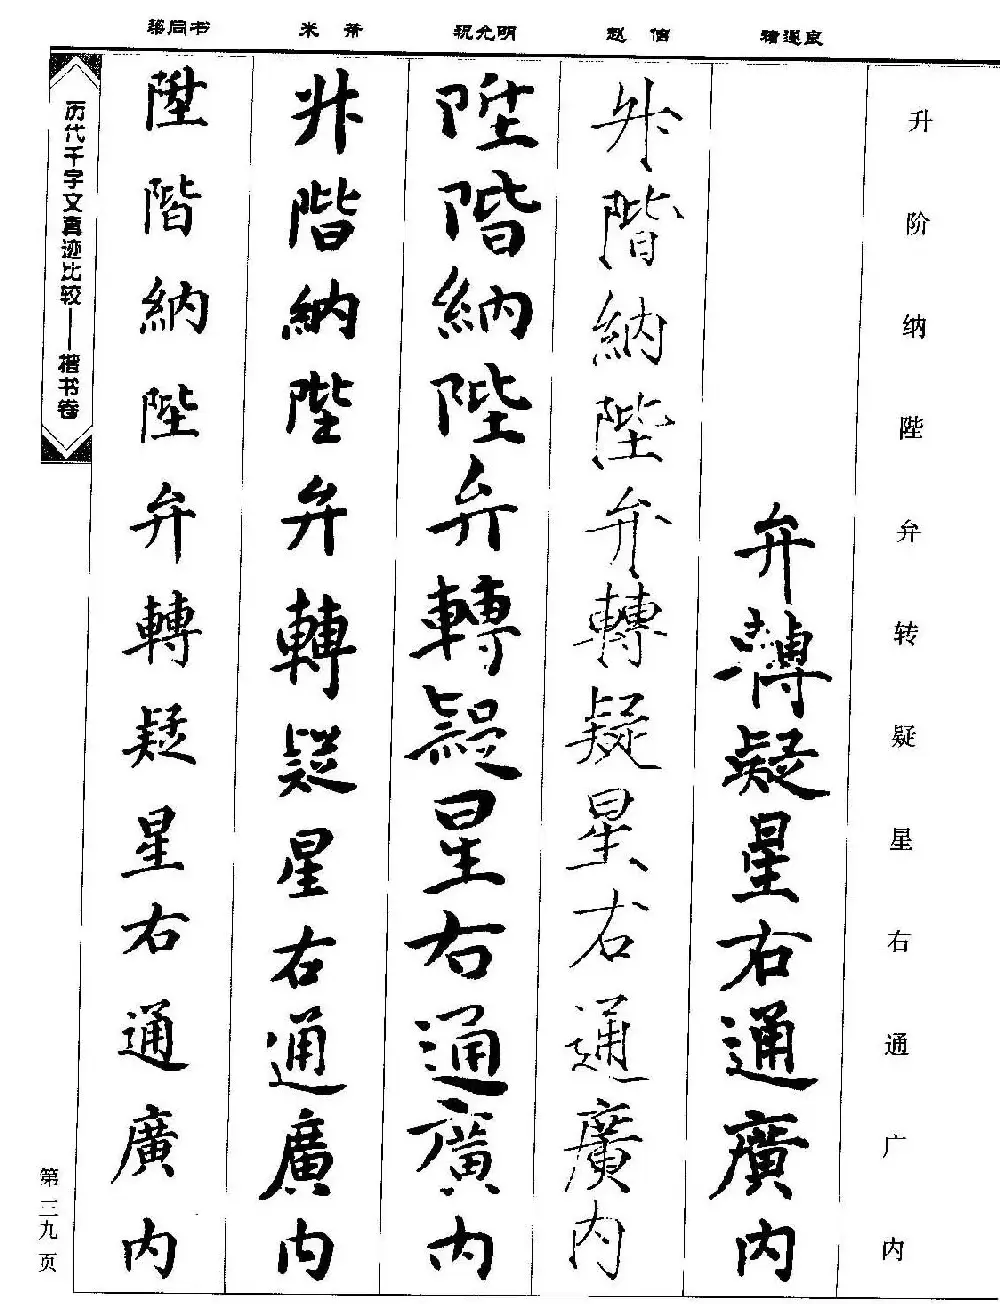 升阶纳陛弁转疑星右通广内
褚遂良
弁轉疑星右通廣内
赵佶
升階納陛弁轉疑星右通廣内
祝允明
陞階納陛弁轉疑星右通廣内
米芾
升階納陛弁轉疑星右通廣内
梁同书
陞階納陛弁轉疑星右通廣内
历代千字文真迹比较——楷书卷
第三九页